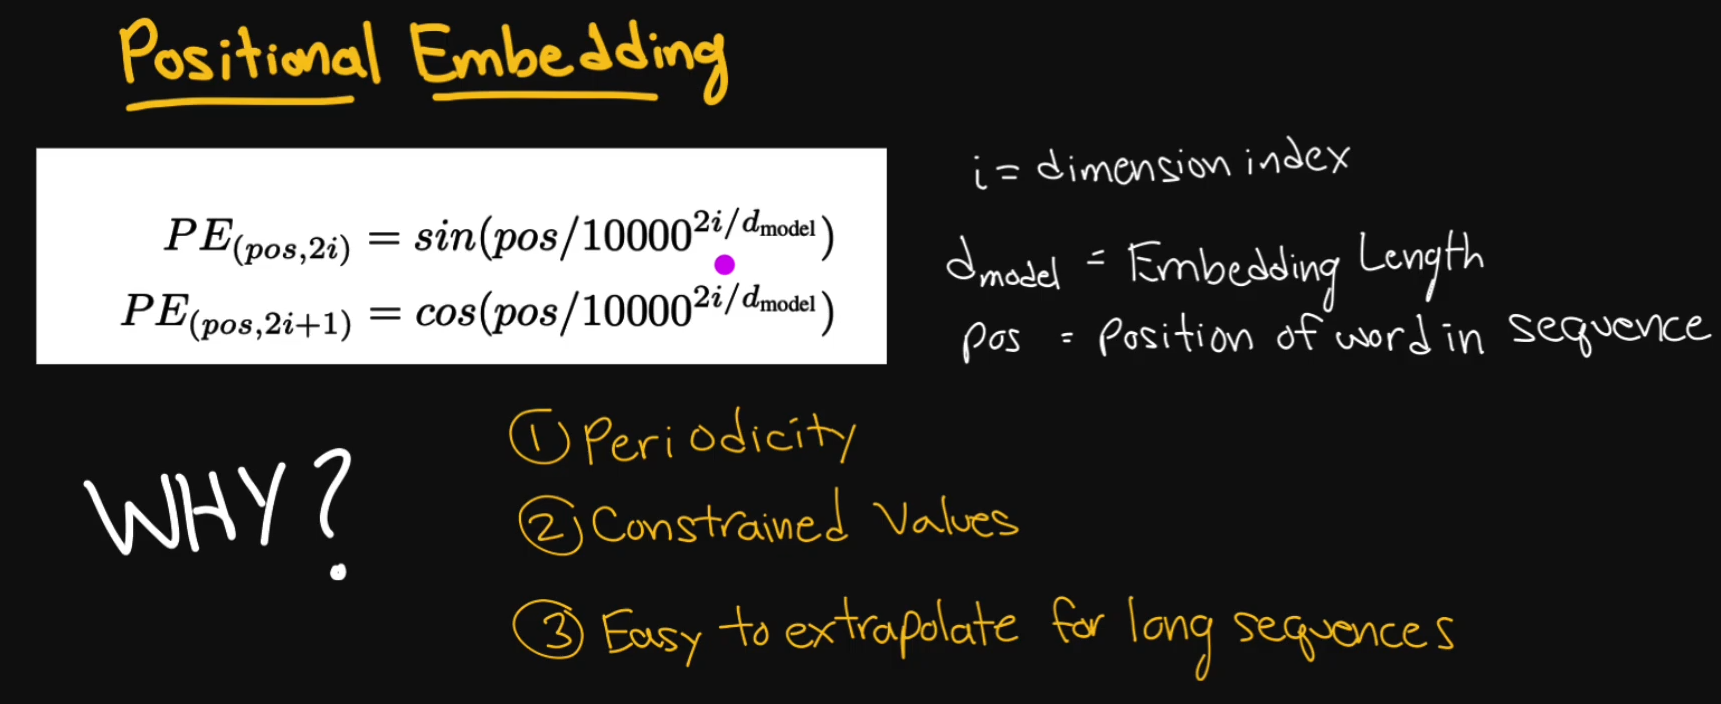 Positional Embedding
PE(pos,2i) = sin(pos/10000^2i/d_model)
PE(pos,2i+1) = cos(pos/10000^2i/d_model)
i = dimension index
d_model = Embedding Length
pos = Position of word in sequence
WHY?
① Periodicity
② Constrained Values
③ Easy to extrapolate for long sequences